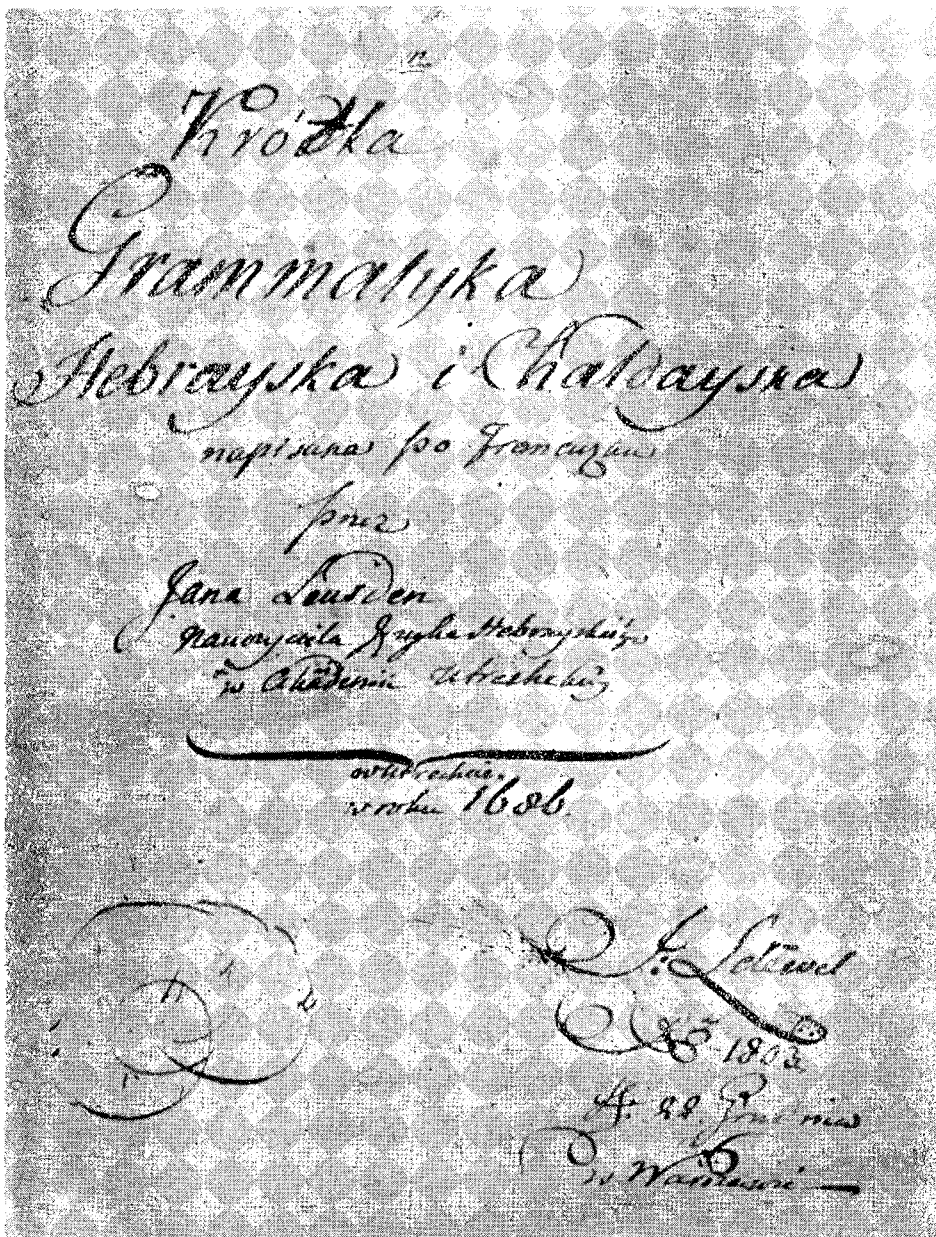 Krótka
Grammatyka
Hebrayska i Chaldayska
napisana po Francuzku
przez
Jana Leusden
Nauczyciela Języka Hebrayskiego
w Akademii Utrechskiey
w Utrechcie.
w roku 1686.
J: Lelewel
1803
d. 22 Grudnia
w Warszawie